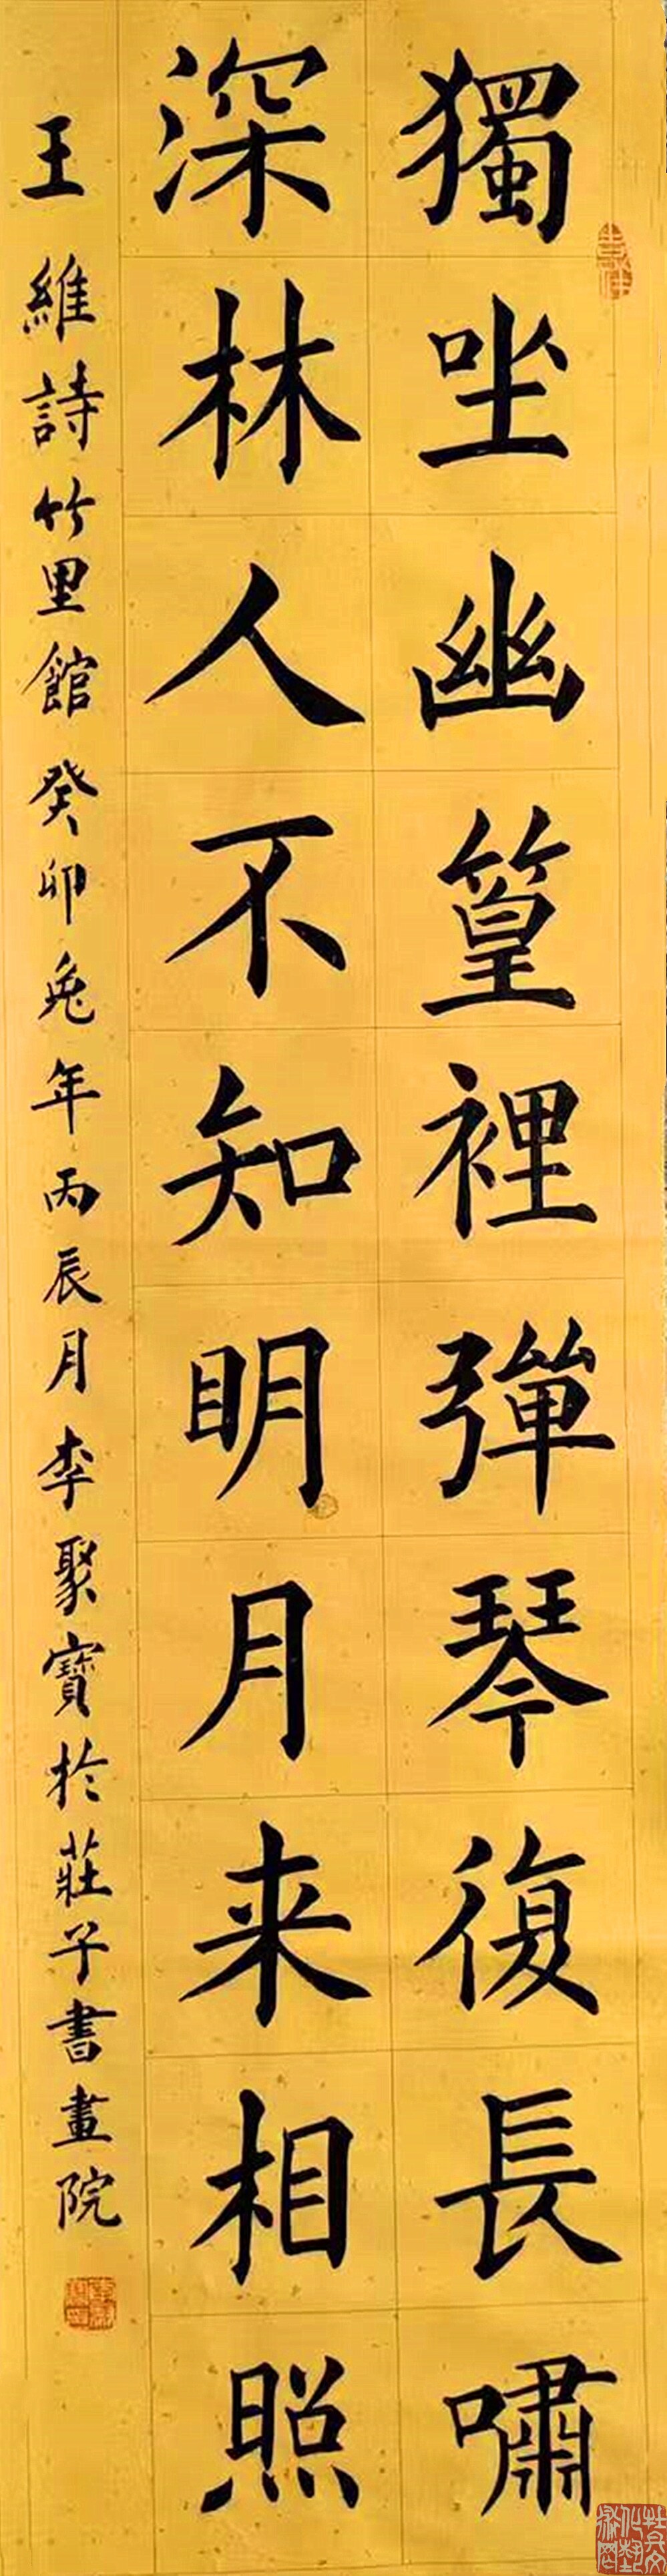 獨坐幽篁裡彈琴復長嘯
深林人不知明月来相照
王維詩竹里館癸卯兔年丙辰月李聚寶於莊子書畫院